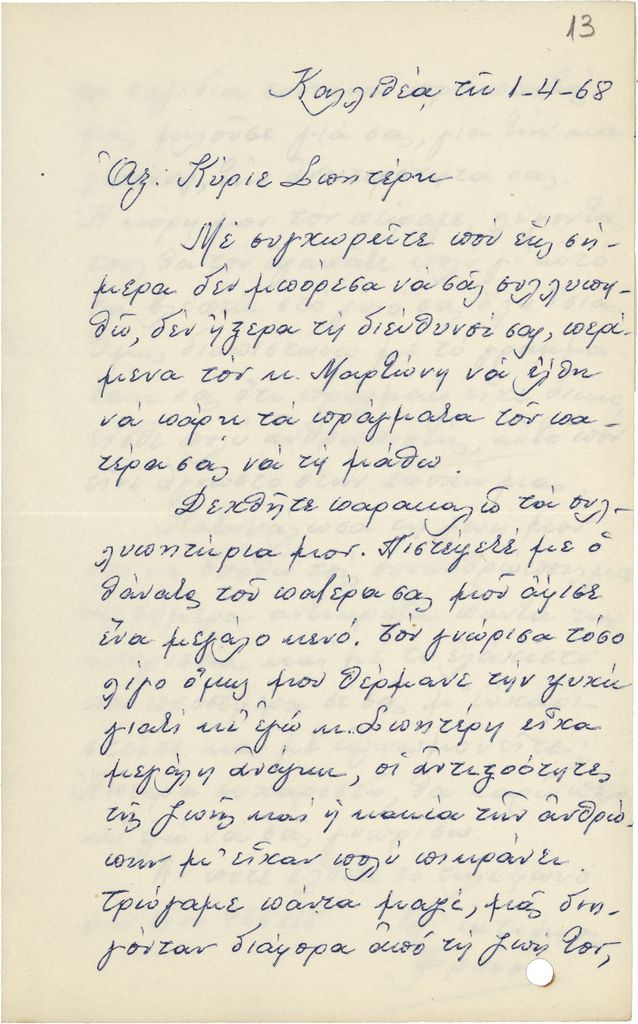 13
Καλλιθέα τῇ 1-4-68
Ἀξ: Κύριε Σπητέρη
Μέ συγχωρεῖτε πού ἕως σή-
μερα δέν μπόρεσα νά σᾶς συλλυπη-
θῶ, δέν ἤξερα τή διεύθυνσί σας, περί-
μενα τόν κ. Μαρτίνη νά ἔλθη
νά πάρη τά πράγματα τοῦ πα-
τέρα σας νά τή μάθω.
Δεχθῆτε παρακαλῶ τά συλ-
λυπητήρια μου. Πιστέψετέ με ὁ
θάνατος τοῦ πατέρα σας μοῦ ἄφισε
ἕνα μεγάλο κενό. Τόν γνώρισα τόσο
λίγο ὅμως μου θέρμανε τήν ψυχή
γιατί κι' ἐγώ κ. Σπητέρη εἶχα
μεγάλη ἀνάγκη, οἱ ἀντιξοότητες
τῆς ζωῆς καί ἡ κακία τῶν ἀνθρώ-
πων μ' εἶχαν πολύ πικράνει
τρώγαμε πάντα μαζί, μᾶς διη-
γόνταν διάφορα ἀπό τή ζωή του,